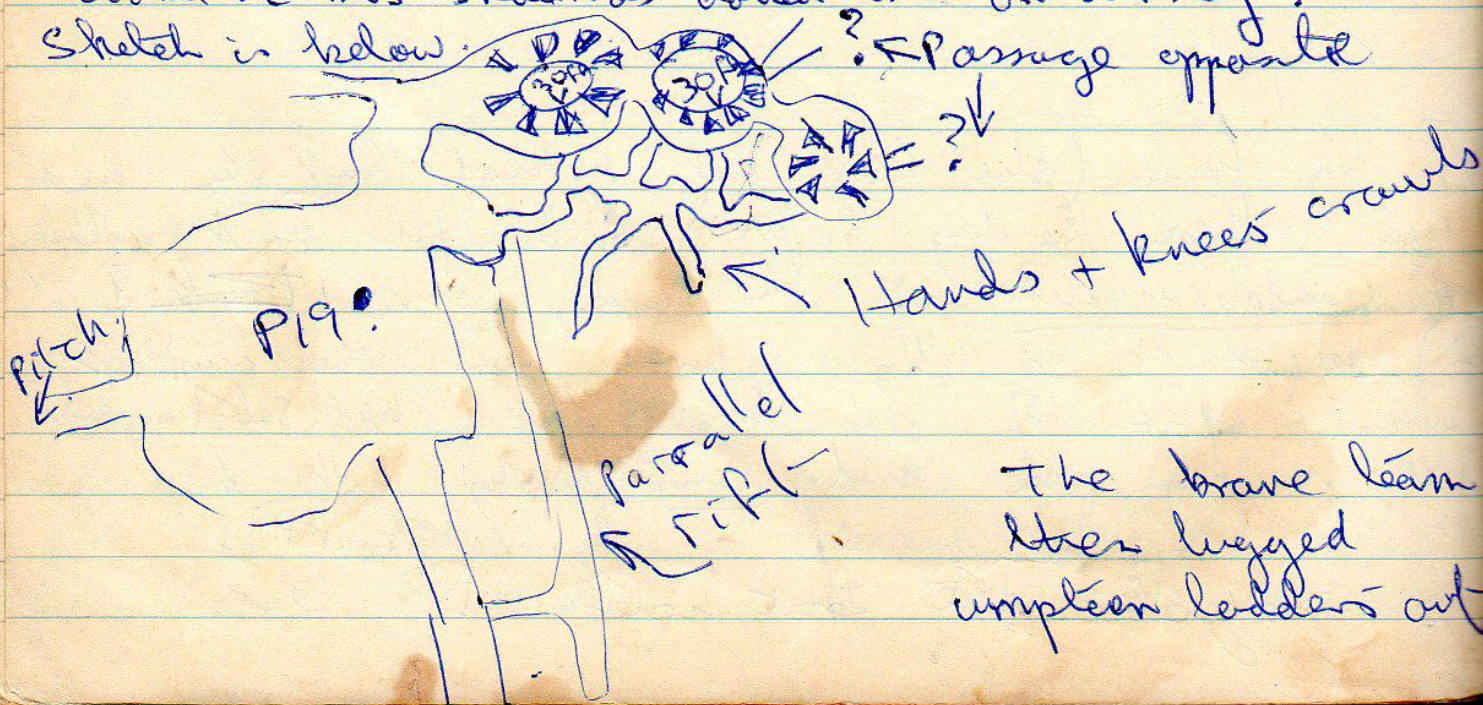 Sketch is below.
? ← Passage opposite
30ft
30ft
?
Hands + knees crawls
Pitch
P19?
Parrallel
rift
The brave team
then lugged
umpteen ladders out